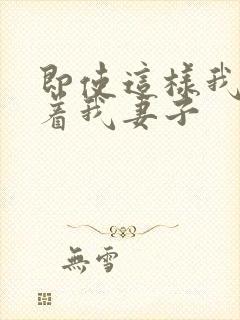 即使這樣我
着我妻子
無雪